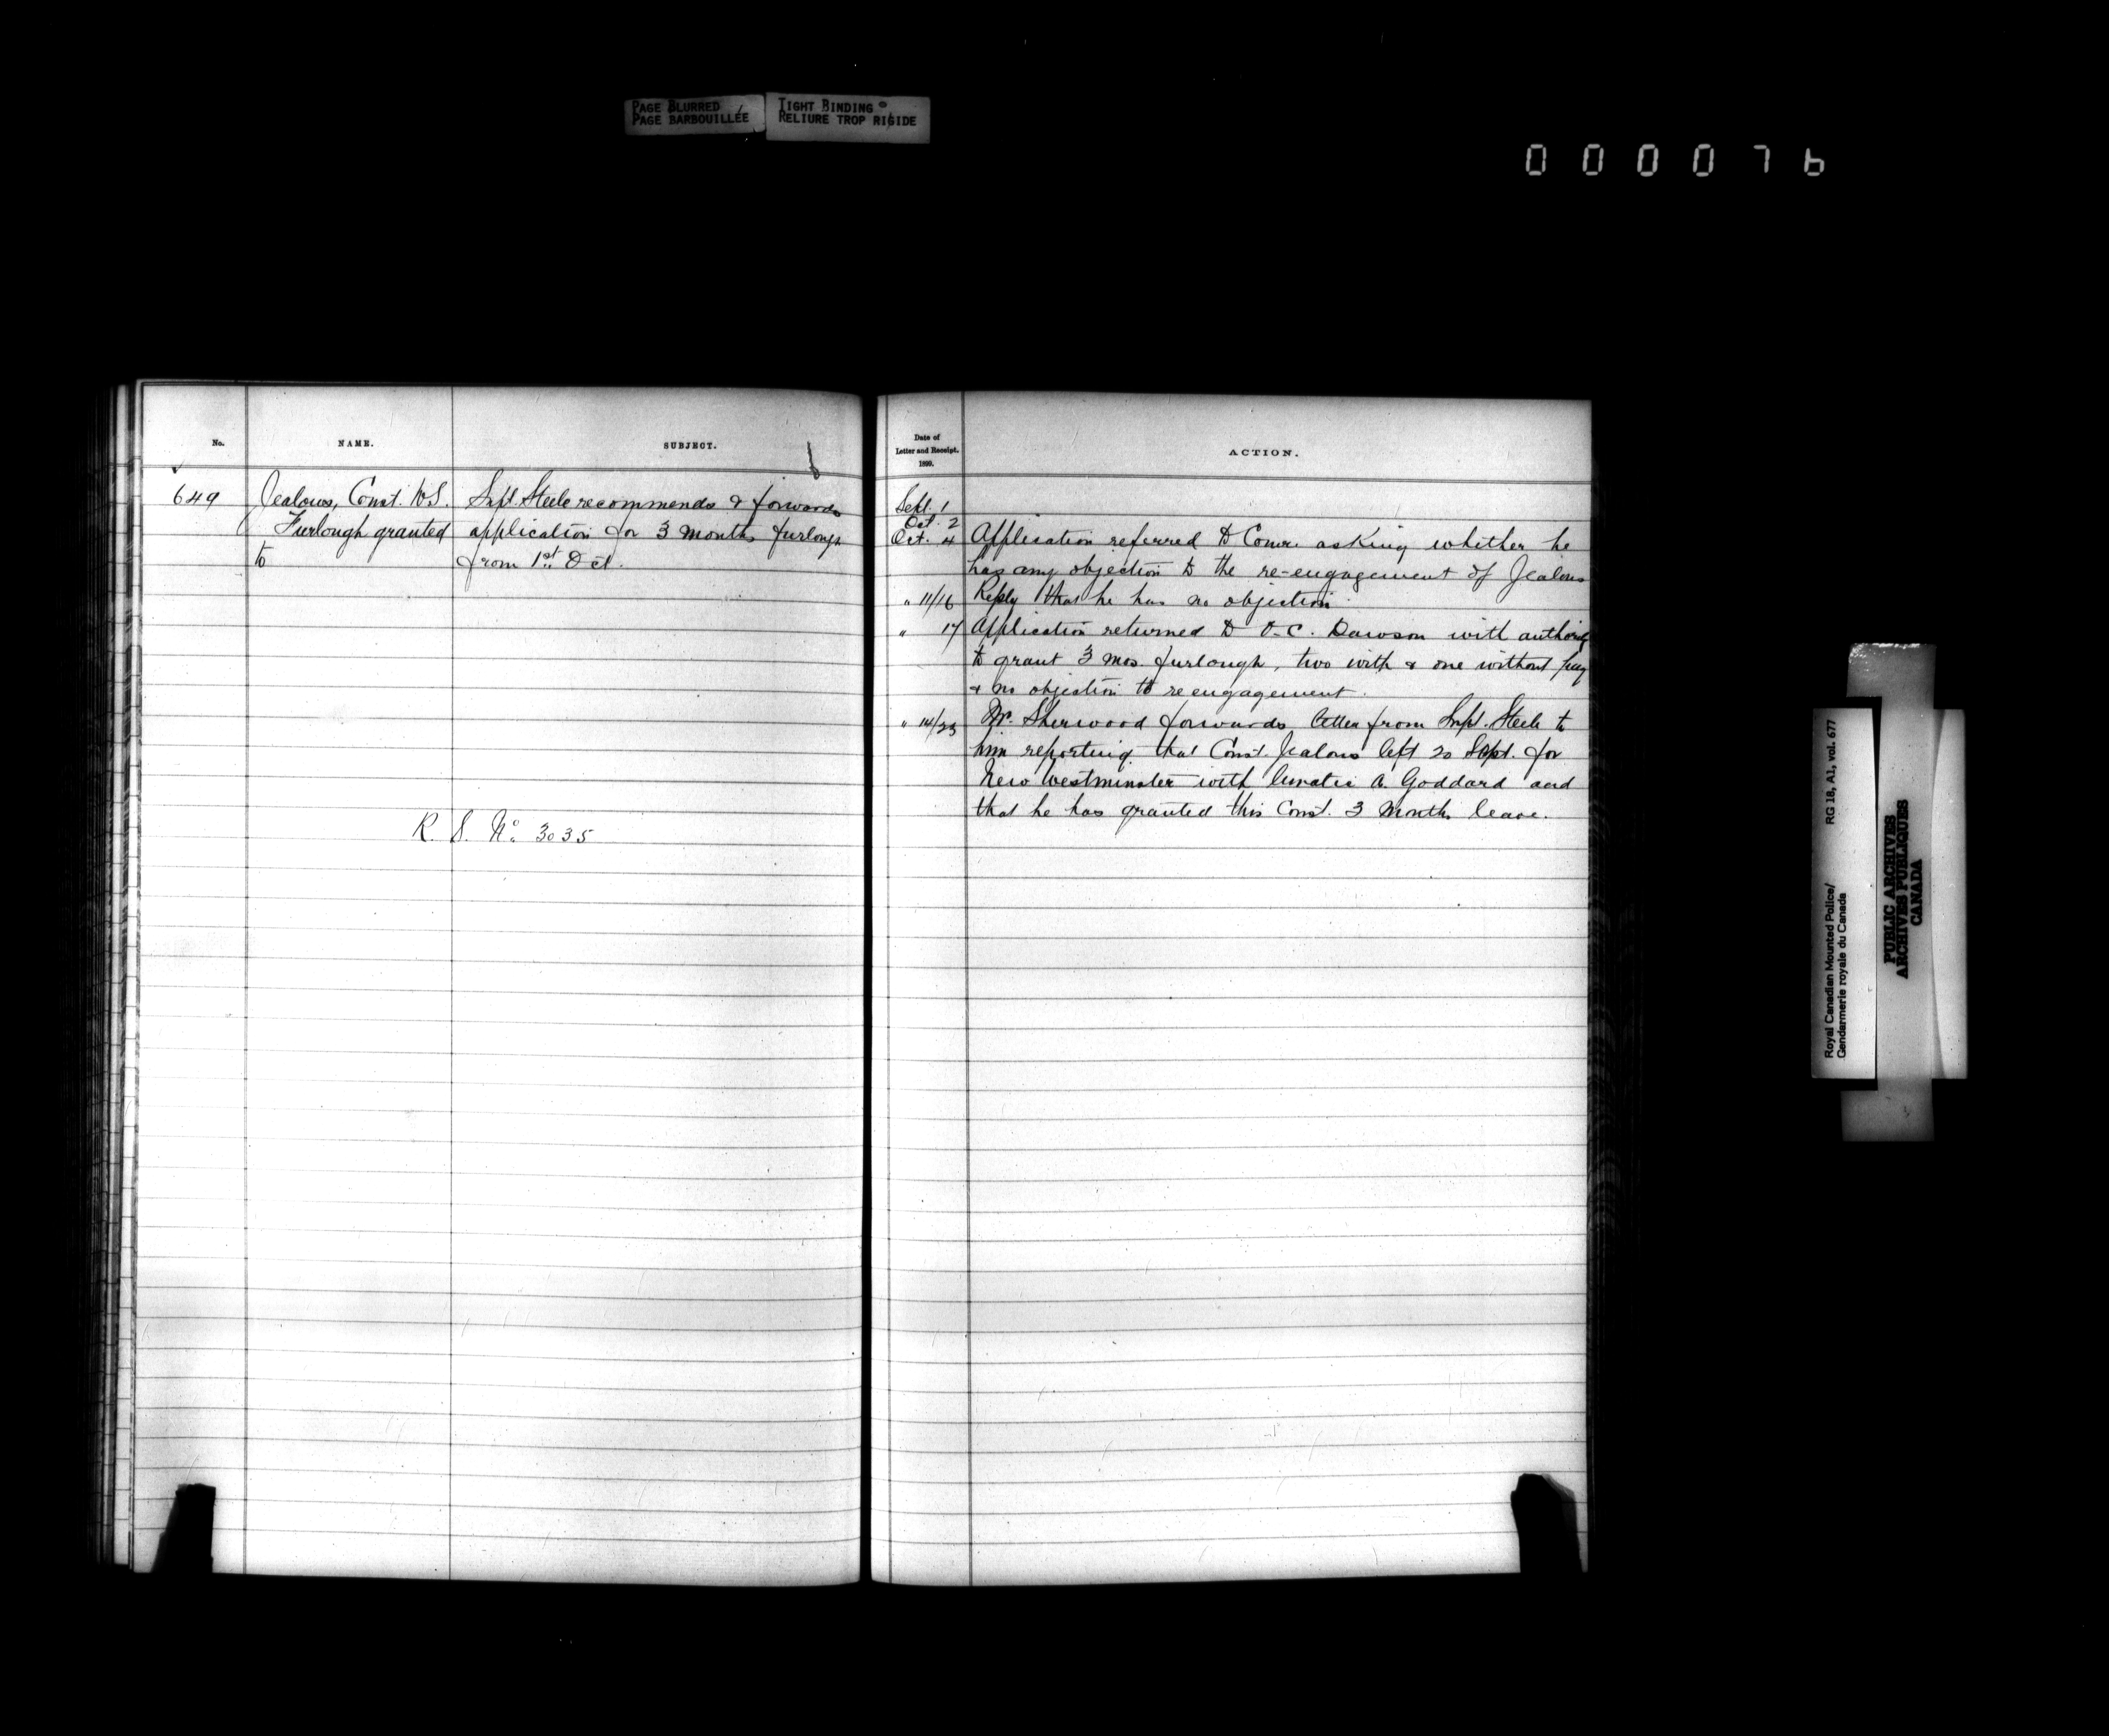 PAGE BLURRED
PAGE BARBOUILLÉE
TIGHT BINDING
RELIURE TROP RIGIDE
000076
No.
NAME.
SUBJECT.
649
Jealous, Const.
Furlough granted
to
Supt. Steele recommends & forwards
application for 3 months furlough
from 1st Oct.
R. S. No. 3035
Date of
Letter and Receipt.
1899.
ACTION.
Sept. 1
Oct. 2
Oct. 4 Application referred to Comr. asking whether he
has any objection to the re-engagement of Jealous
" 11/16 Reply that he has no objection.
" 17 Application returned to O.C. Dawson with authority
to grant 3 mos. furlough, two with & one without pay
& no objection to reengagement.
" 14/23 Mr. Sherwood forwards letter from Supt. Steele to
him reporting that Const. Jealous left 20 Sept. for
New Westminster with lunatic A. Goddard and
that he has granted this Const. 3 Months leave.
Royal Canadian Mounted Police/ RG 18, A1, vol. 677
Gendarmerie royale du Canada
PUBLIC ARCHIVES
ARCHIVES PUBLIQUES
CANADA